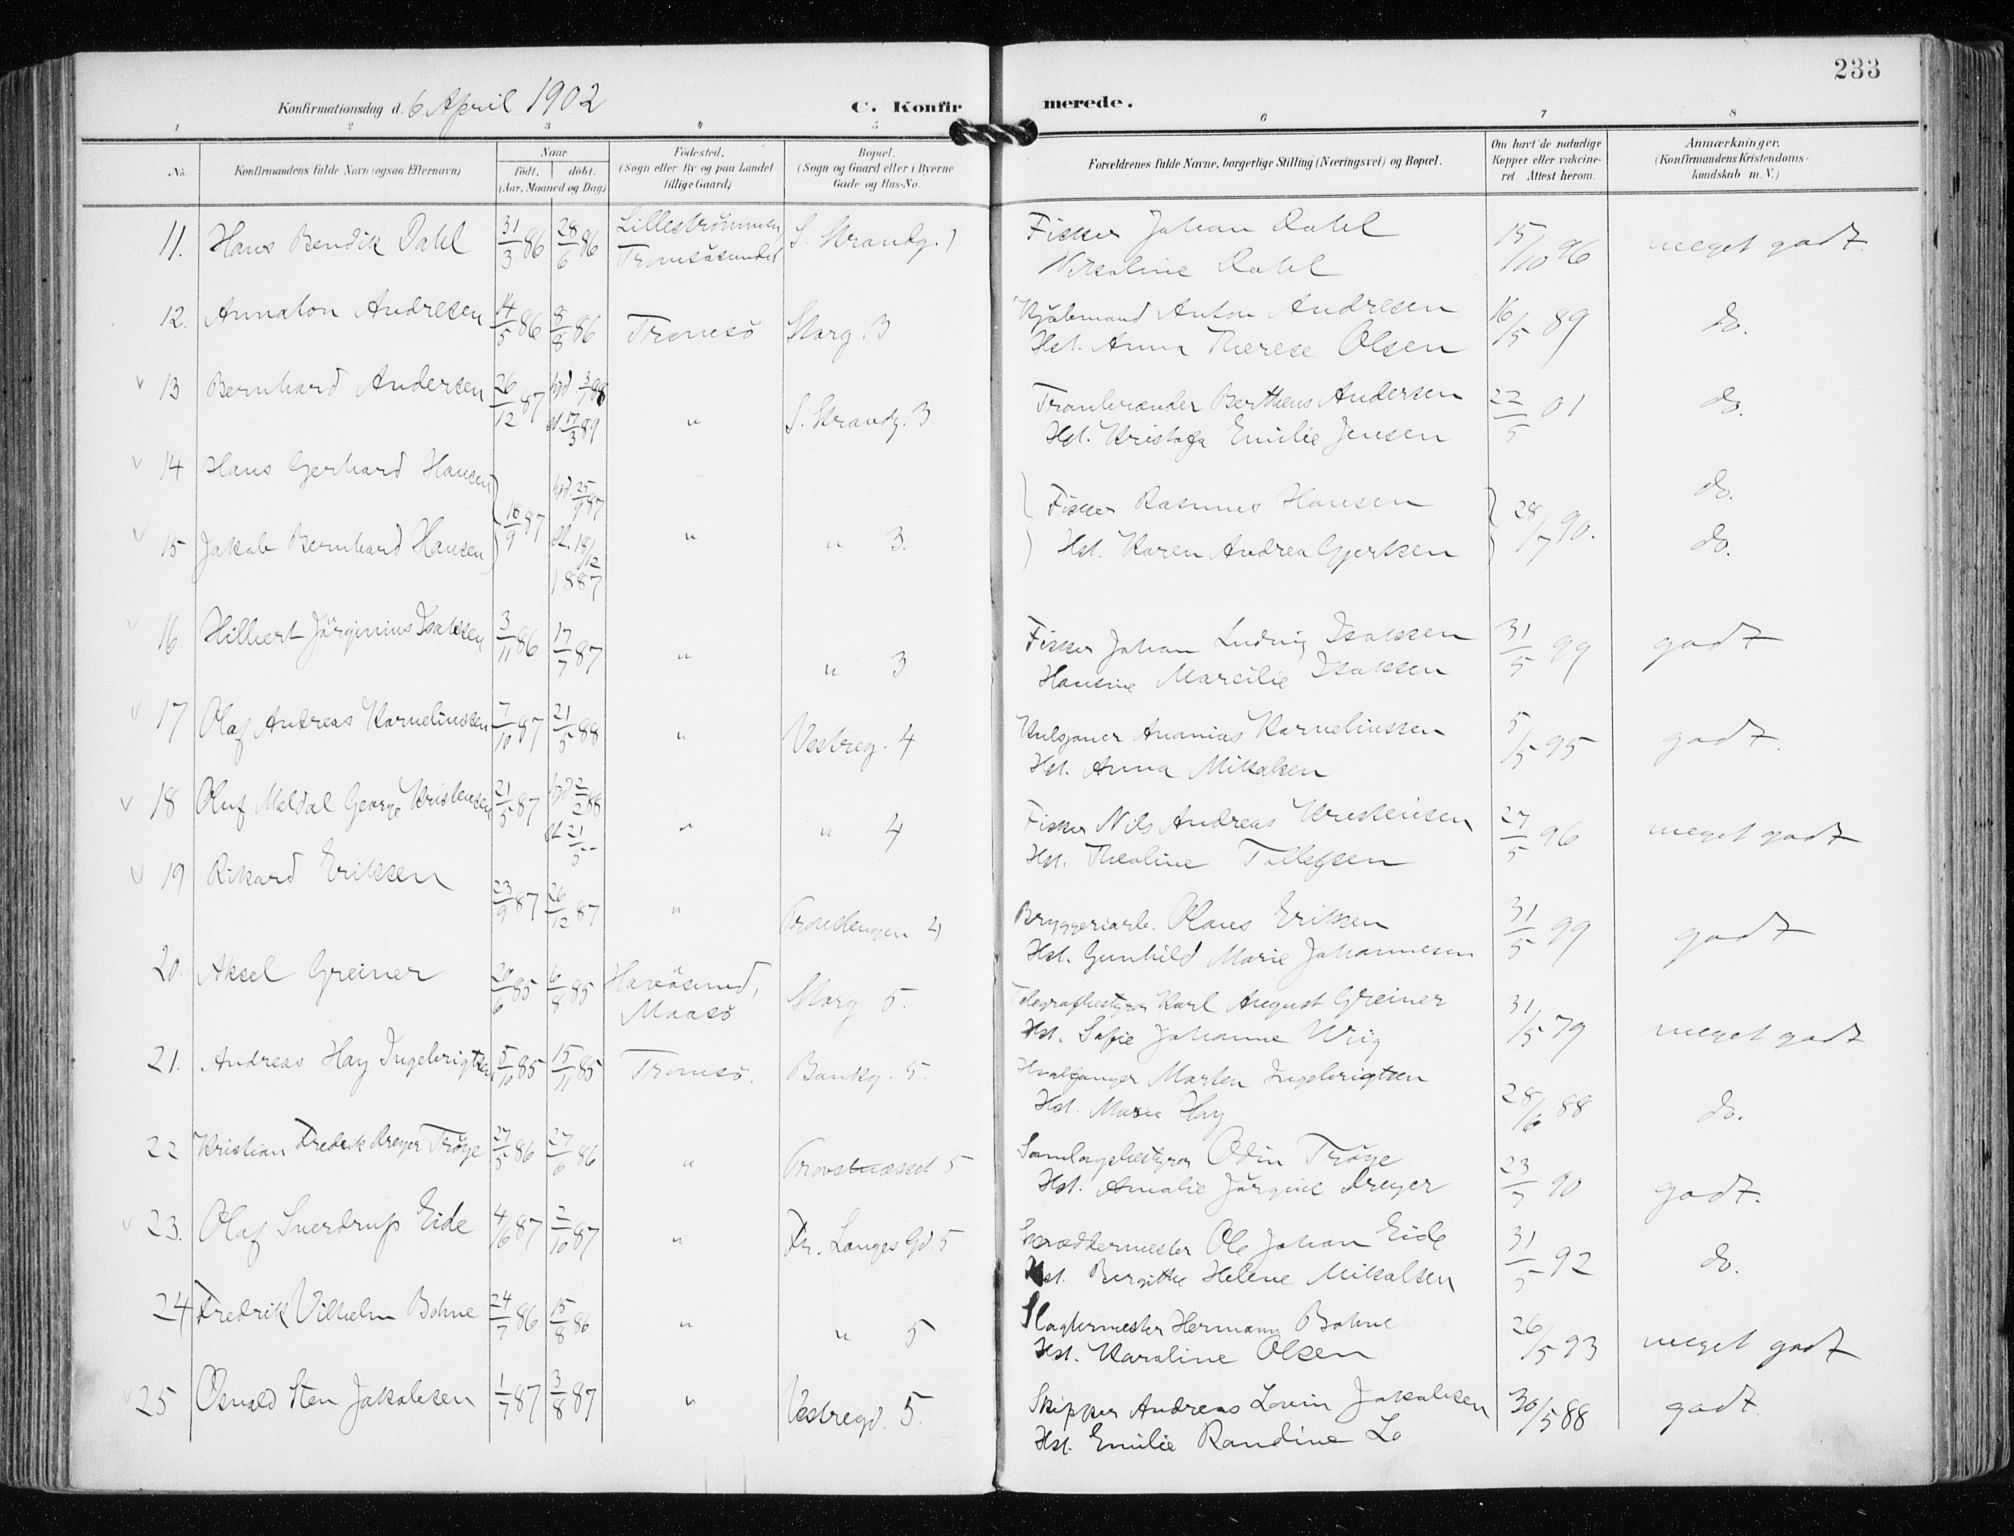 233
Konfirmationsdag d. 6 April 1902 C. Konfirmerede.
1 2 3 4 5 6 7 8
No. Konfirmandens fulde Navn (ogsaa Efternavn) Naar født, døbt. (Aar, Maaned og Dag) Födested. (Sogn eller By og paa Landet tillige Gaard) Bopæl. (Sogn og Gaard eller i Byerne Gade og Hus-No. Forældrenes fulde Navne, borgerlige Stilling (Næringsvei) og Bopæl. Om havt de naturlige Kopper eller vakcineret. Attest herom. Anmærkninger. (Konfirmandens Kristendomskundskab m. V.)
11. Hans Bendik Dahl 31/3 86 28/6 86 Lillestrømmen Tromsøsundet S. Strandg. 1 Fisker Johan Dahl 15/10 96 meget godt
Nikoline Dahl
12. Annaton Andresen 14/5 86 8/8 86 Tromsö Storg. 3 Kjöbmand Anton Andresen 16/5 89 do.
Hst. Anna Therese Olsen
13 Bernhard Andersen 26/12 87 st. 17/3 89 " S. Strandg. 3 Tranbrænder Bertheus Andersen 22/5 01 do.
Hst. Kristofa Emilie Jensen
14 Hans Gerhard Hansen 18/9 87 hjd. 25/9 87 Fisker Rasmus Hansen 28/7 90. do.
15 Jakob Bernhard Hansen st. 18/12 1887 " " 3. Hst. Karen Andrea Gjertsen do.
16. Hilbert Jörginius Isaksen 3/11 86 17/7 87 " " 3 Fisker Johan Ludvig Isaksen 31/5 99 godt
Hansine Marcilie Isaksen
17 Olaf Andreas Korneliussen 7/10 87 21/5 88 " Vestreg. 4 Ananias Korneliussen 5/5 95 godt.
Hst. Anna Mikalsen
18 Oluf Meldal George Kristensen 21/5 87 hjd 2/2 88 st. 21/5 " " 4 Fisker Nils Andreas Kristensen 27/5 96 meget godt
Hst. Thealine Tollefsen
19 Rikard Eriksen 23/9 87 26/12 87 " 4 Bryggeriarb. Olaus Eriksen 31/5 99 godt
Hst. Gunhild Marie Johannesen
20. Aksel Greiner 20/6 85 6/8 85 Havösund, Maasö Storg 5. Telegrafbestyrer Karl August Greiner 31/5 79 meget godt
Hst. Sofie Johanne Wiig
21. Andreas Hay Ingebrigtsen 5/10 85 15/11 85 Tromsö. Bankg. 5. Hvalfanger Morten Ingebrigtsen 28/6 88 do.
Hst. Marie Hay
22 Kristian Fredrik Dreyer Tröye 27/5 86 27/6 86 " 5 Samlagsbestyrer Odin Tröye 23/7 90 godt.
Hst. Amalie Jörgine Dreyer
23. Olaf Sverdrup Eide 4/6 87 2/10 87 " Fr. Langes Gd. 5 Skræddermester Ole Johan Eide 31/5 92 do.
Hst. Birgitte Helene Mikalsen
24 Fredrik Vilhelm Bohne 24/7 86 15/8 86 " " 5 Slagtermester Hermann Bohne 26/5 93 meget godt
Hst. Karoline Olsen
25 Osvald Sten Jakobsen 1/7 87 3/8 87 " Vestregd. 5. Skipper Andreas Lovin Jakobsen 30/5 88 godt
Hst. Emilie Randine Lo